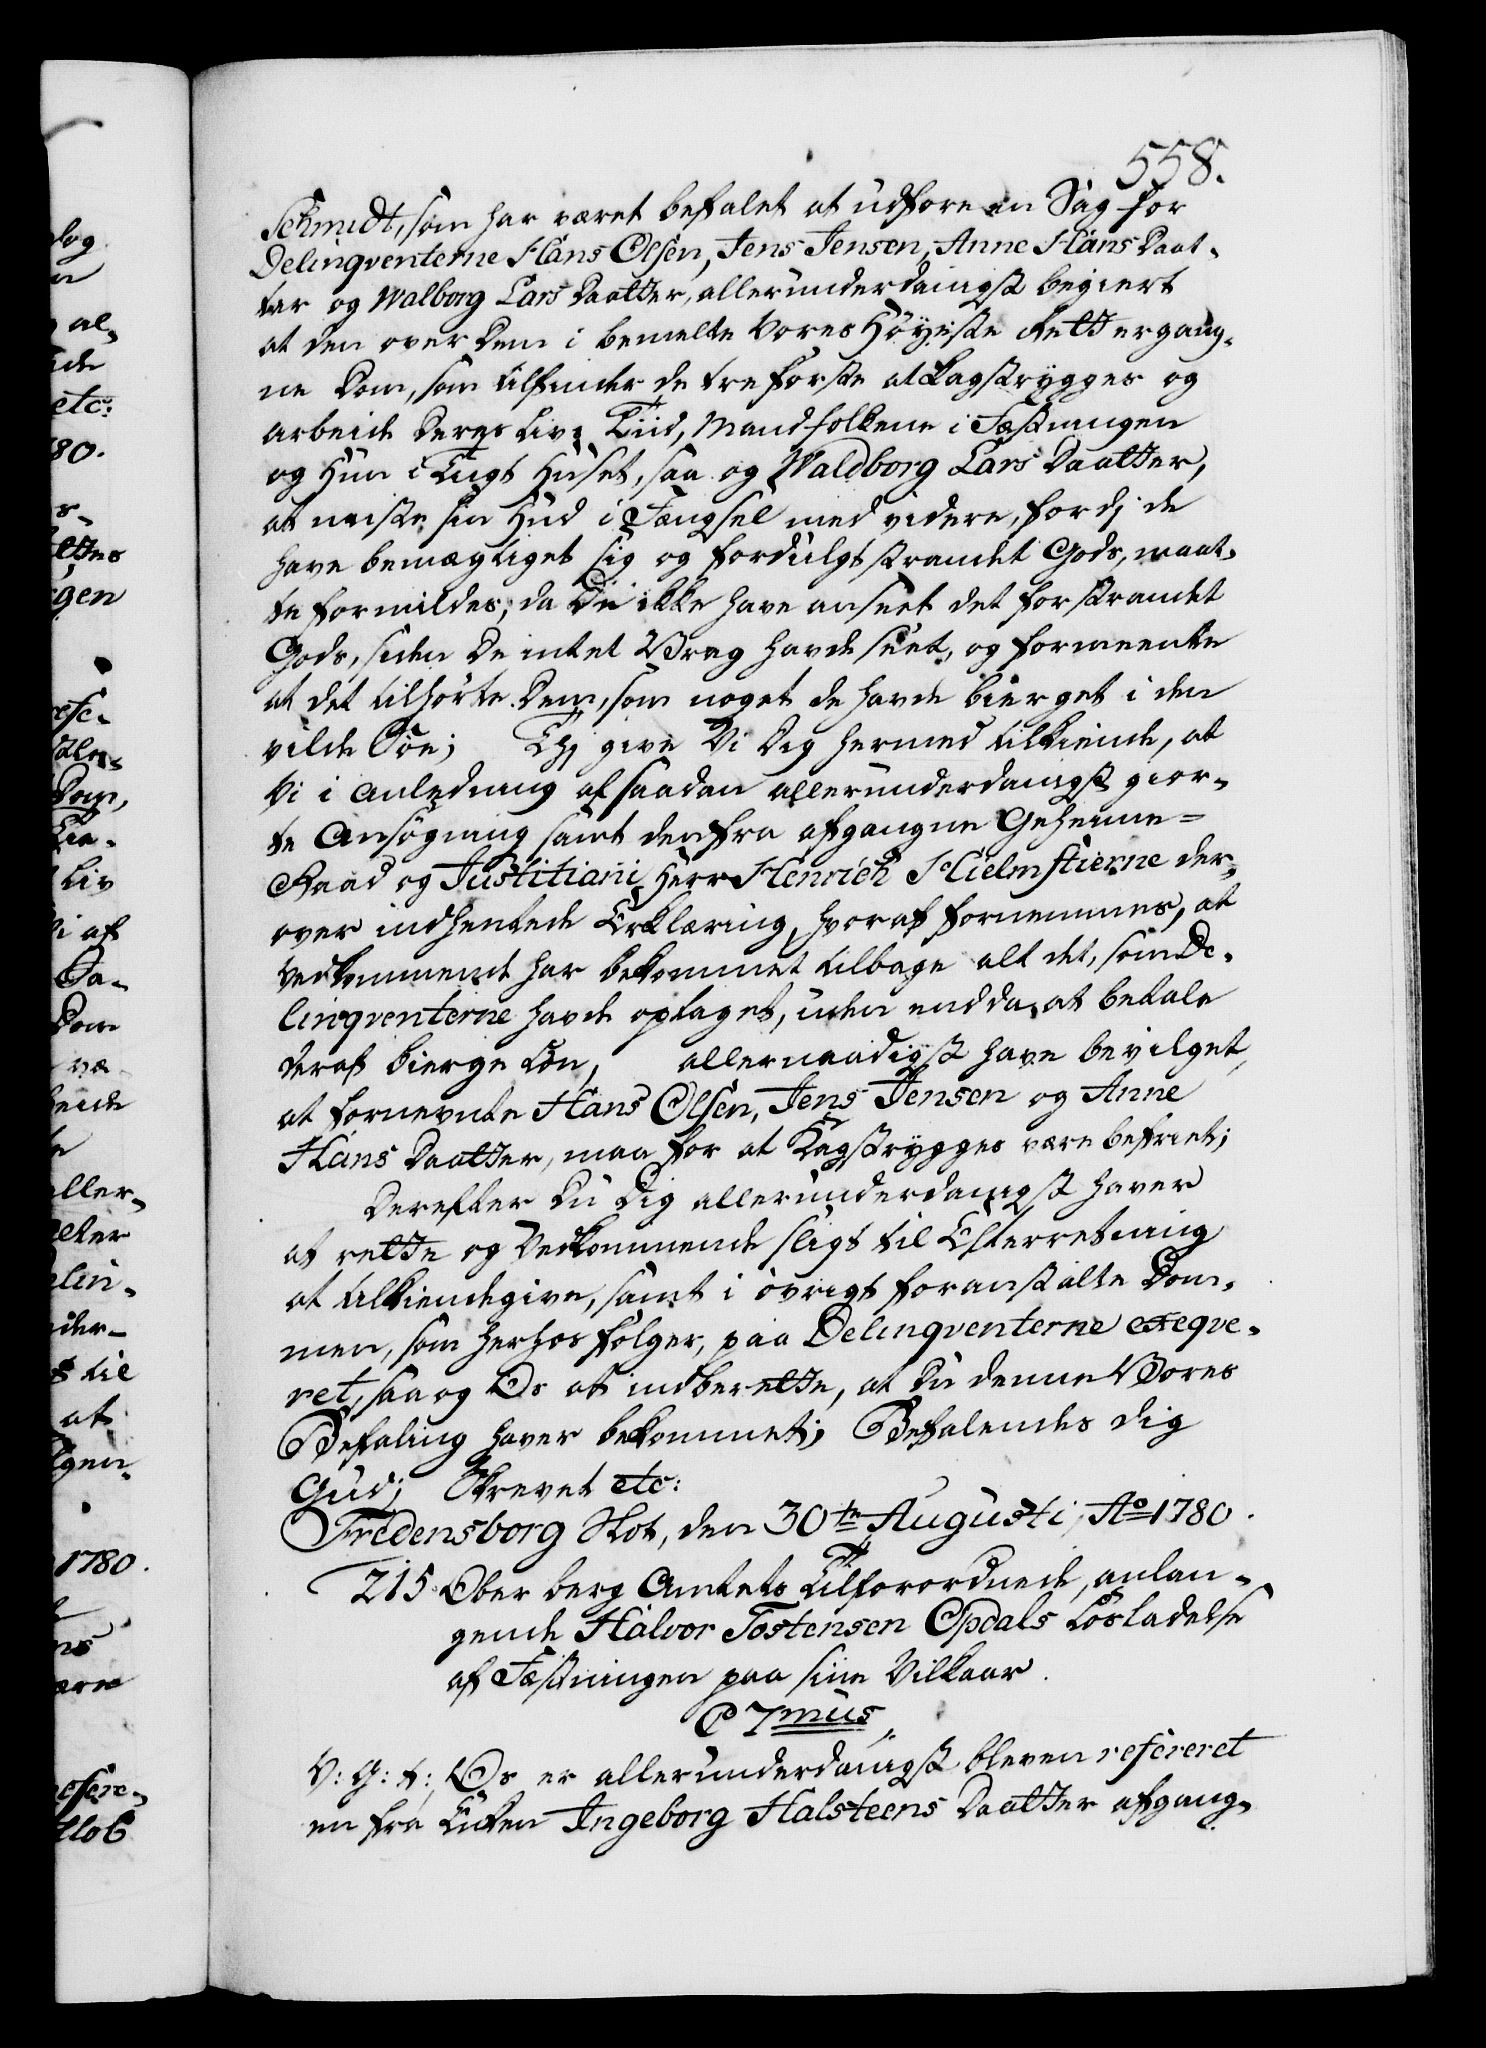 558.
Schmidt, som har været befalet at udføre en Sag for
Delinqventerne Hans Olsen, Jens Jensen, Anne Hans Daat-
ter og Walborg Lars Daatter, allerunderdanigst begiert
at den over Dem i bemelte Vores Høyeste Rett ergang-
ne Dom, som tilfinder de tre første at Kagstrygges og
arbeide Deres Livs Tiid, Mandfolkene i Fæstningen
og Hun i Tugt Huset, saa og Waldborg Lars Daatter,
at miste sin Hud i Fængsel med videre, fordj de
have bemægtiget sig og fordulgt strandet Gods, maat-
te formildes; da De ikke have anseet det for strandet
Gods, siden De intet Vrag havde seet, og formeente
at det tilhørte Dem, som noget de havde bierget i den
vilde Søe; Thj give Vi Dig hermed tilkiende, at
Vi i Anledning af saadan allerunderdanigst gior-
te Ansøgning samt den fra afgangne Geheime-
Raad og Justitiarii Herr Henrich Hielmstierne der-
over indhentede Erklæring, hvoraf fornemmes, at
Vedkommende har bekommet tilbage alt det, som De-
linqventerne havde optaget, uden endda at betale
deraf Bierge Løn, allernaadigst have bevilget,
at fornevnte Hans Olsen, Jens Jensen og Anne
Hans Daatter, maa for at Kagstrygges være befriet;
Derefter Du Dig allerunderdanigst haver
at rette og Vedkommende sligt til Efterretning
at tilkiendegive, samt i øvrigt foranstalte Dom-
men, som herhos følger, paa Delinqventerne exeqve-
ret, saa og Os at indberette, at Du denne Vores
Befaling haver bekommet; Befalendes dig
Gud; Skrevet etc:
Fredensborg Slot, den 30te Augusti Ao 1780.
215 Ober berg Amtets Tilforordnede, anlan-
gende Halvor Tostensen Opdals Løsladelse
af Fæstningen paa siine Vilkaar.
C 7mus
V: G: t: Os er allerunderdanigst bleven refereret
en fra Enken Ingeborg Halsteens Daatter afgang-